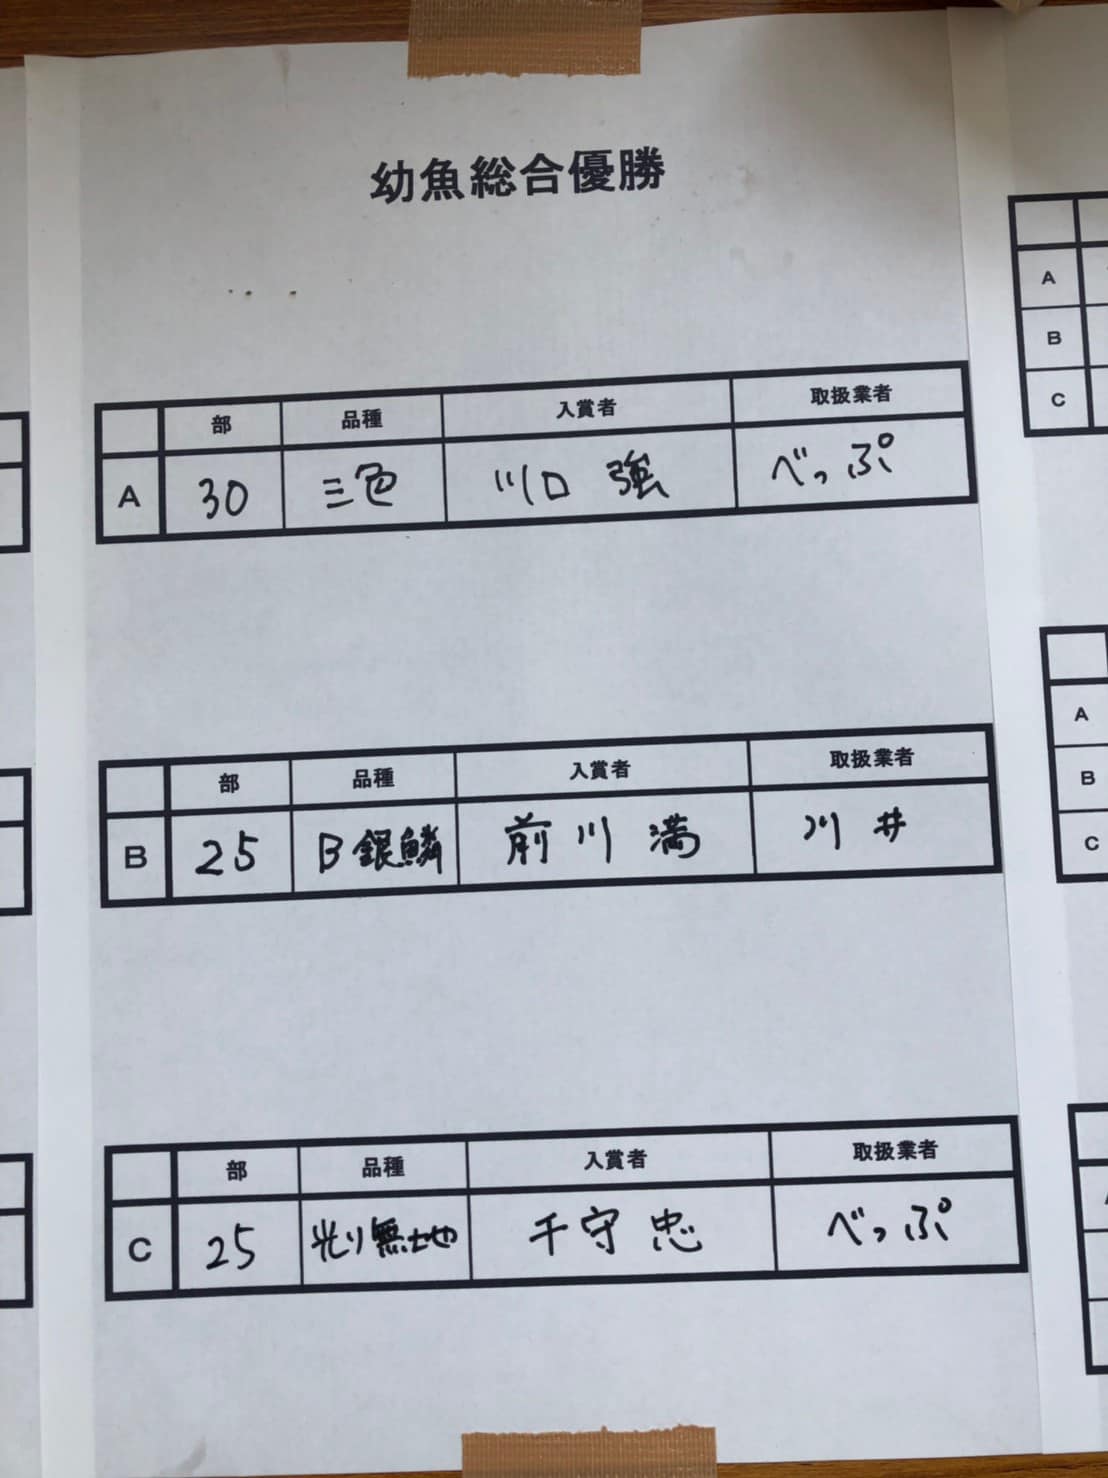 幼魚総合優勝
部 品種 入賞者 取扱業者
A 30 三色 川口 強 べっぷ
部 品種 入賞者 取扱業者
B 25 B銀鱗 前川 満 川井
部 品種 入賞者 取扱業者
C 25 光り無地 千守 忠 べっぷ
A
B
C
A
B
C